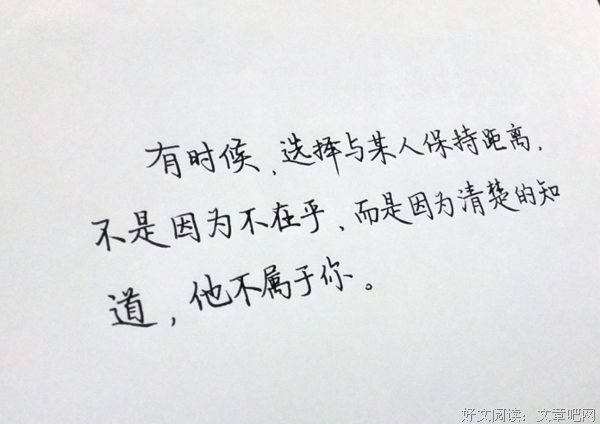 有时候，选择与某人保持距离，
不是因为不在乎，而是因为清楚的知
道，他不属于你。
好文阅读：文章吧网